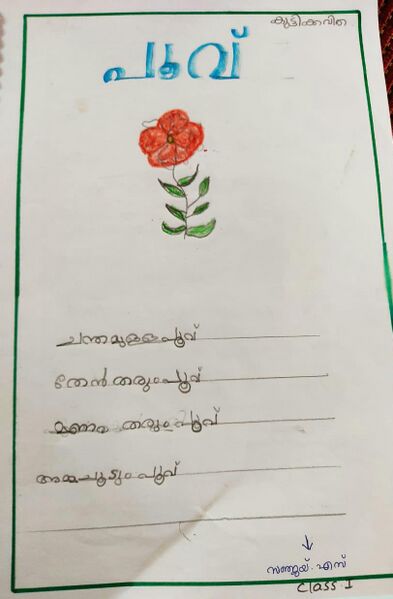 കുട്ടിക്കവിത
പൂവ്
ചന്തമുള്ളപൂവ്
തേൻ തരുംപൂവ്
മണം തരും പൂവ്
അമ്മചൂടും പൂവ്
സഞ്ജയ്. എസ്
Class I